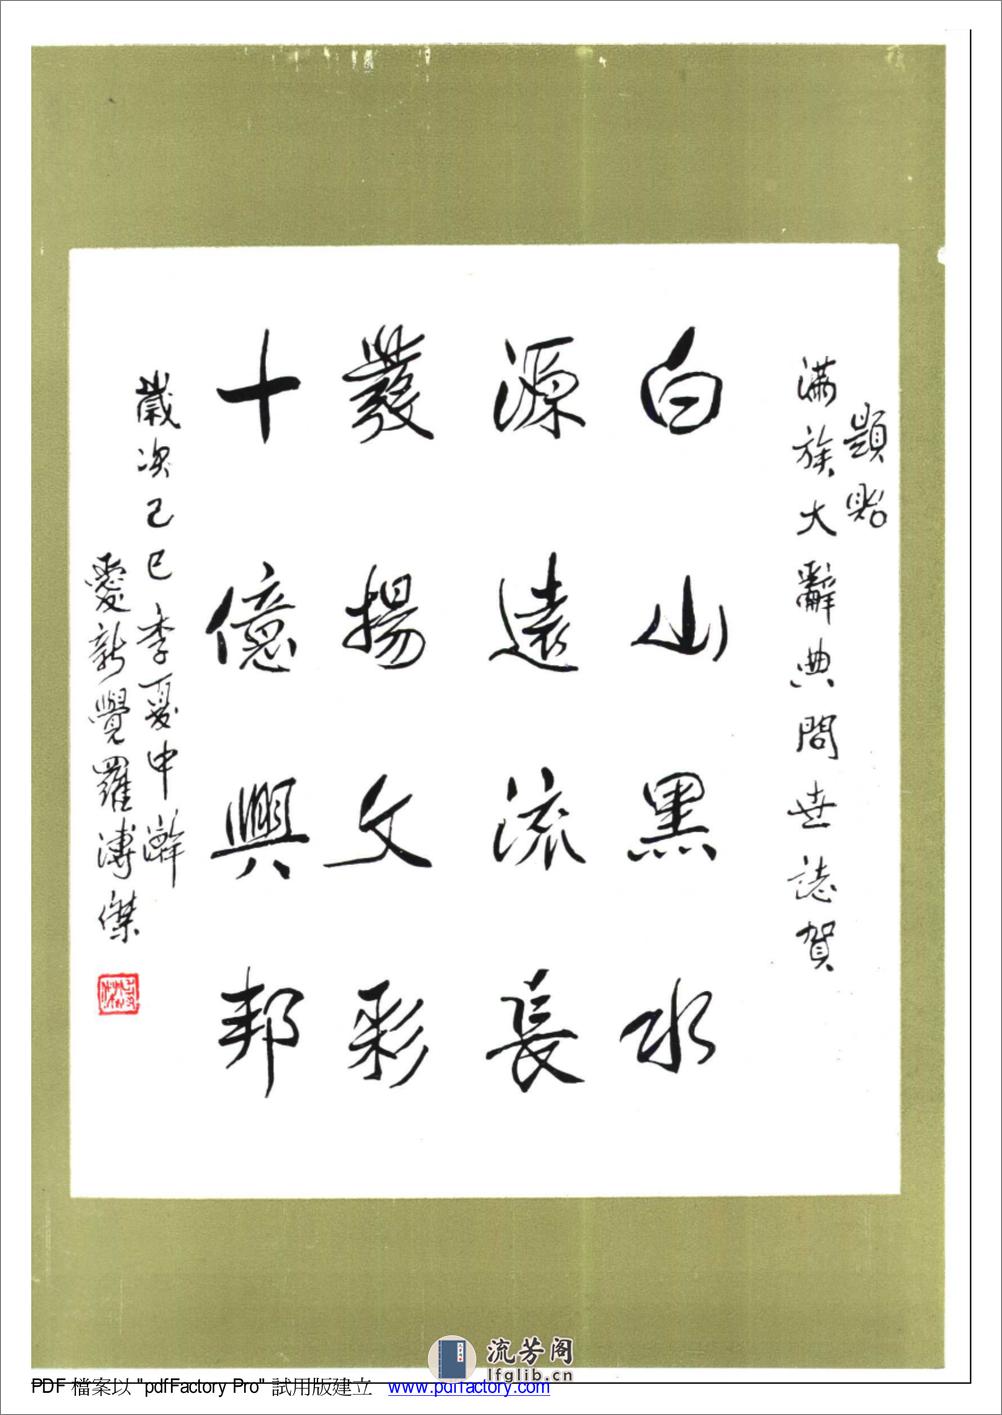 題貽
满族大辭典問世誌賀
白山黑水
源遠流長
發揚文彩
十億興邦
歲次己巳季夏中澣
愛新覺羅溥傑
流芳阁
lfglib.cn
PDF 檔案以 "pdfFactory Pro" 試用版建立 www.pdffactory.com